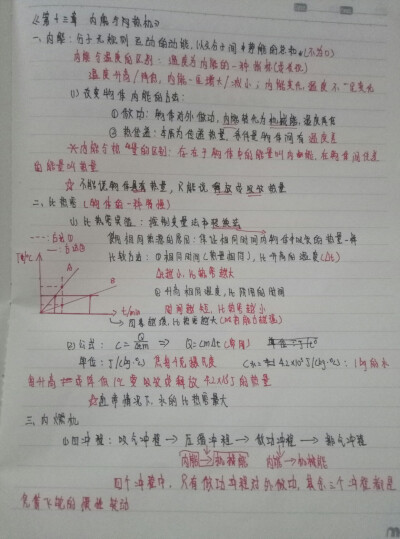 《第十三章 内能与内燃机》
一、内能：分子无规则运动的动能，以及分子间势能的总和。(不为0)
内能与温度的区别：温度为内能的一种指标
温度升高/降低，内能一定增大/减小；内能变化，温度不一定变化
(1) 改变物体内能的方法：
① 做功：物体对外做功，内能转化为机械能，温度降低
② 热传递：本质为传递热量，条件是物体间有温度差
☆内能与热量的区别：存在于物体内的能量叫内能，在物体间传递
的能量叫热量
☆ 不能说物体具有热量，只能说释放或吸收热量
二、比热容 (物体的一种属性)
(1) 比热容实验：控制变量法和转换法
---：方法①
—：方法②
用相同热源的原因：保证相同时间内物体吸收的热量一样
比较方法：① 相同时间(热量相同)，比升高的温度(Δt)
Δt越小，比热容越大
② 升高相同温度，比所用的时间
时间越短，比热容越小
T/℃
A
B
t/min
(2) 公式：C=Q/mΔt ⇒ Q=cmΔt (常用)
单位：J/(kg·℃) C水=4.2×10³ J/(kg·℃)：1kg的水
每升高或降低1℃要吸收或释放4.2×10³J的热量
☆通常情况下，水的比热容最大
三、内燃机
(1) 四冲程：吸气冲程→压缩冲程→做功冲程→排气冲程
内能→机械能
四个冲程中，只有做功冲程对外做功，其余三个冲程都是
凭着飞轮的惯性转动